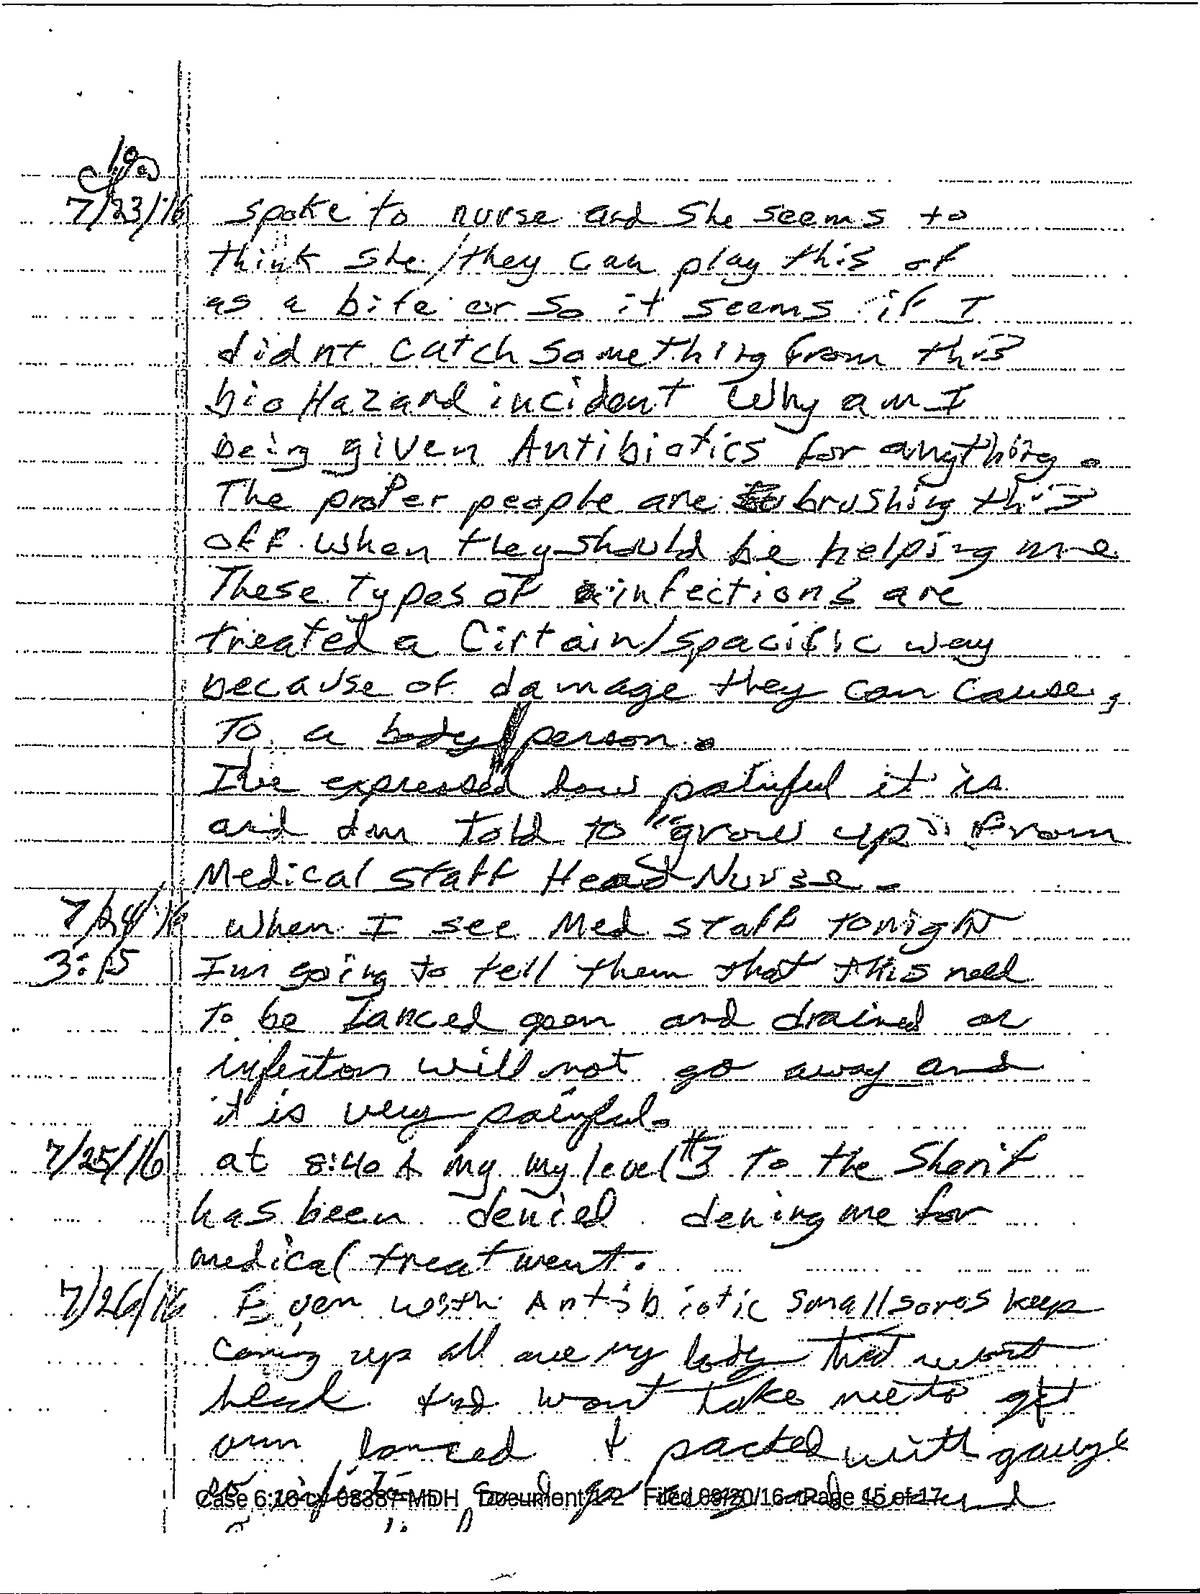 7/23/16 spoke to nurse and she seems to
think she/they can play this of
as a bite or so it seems if I
didnt catch something from this
bioHazard incident Why am I
being given Antibiotics for anything.
The proper people are brushing this
off when they should be helping me
These types of infections are
treated a Cirtain/spacific way
because of damage they can cause,
To a body/person.
I've expressed how painful it is
and Im Told to "grow up" From
Medical staff Head Nurse.
7/24/16 When I see Med staff tonight
3:15 I'm going to tell them that this need
To be Lanced open and drained or
infection will not go away and
it is very painful.
7/25/16 at 8:40 my my level #3 To the Sherif
has been denied dening me for
medical treatment.
7/26/16 Even with Antibiotic small sores keep
coming up all over my body that wont
heal And wont take me to get
arm lanced & packed with gauge
Case 6:16-cv-03387-MDH Document 1-2 Filed 09/20/16 Page 15 of 17